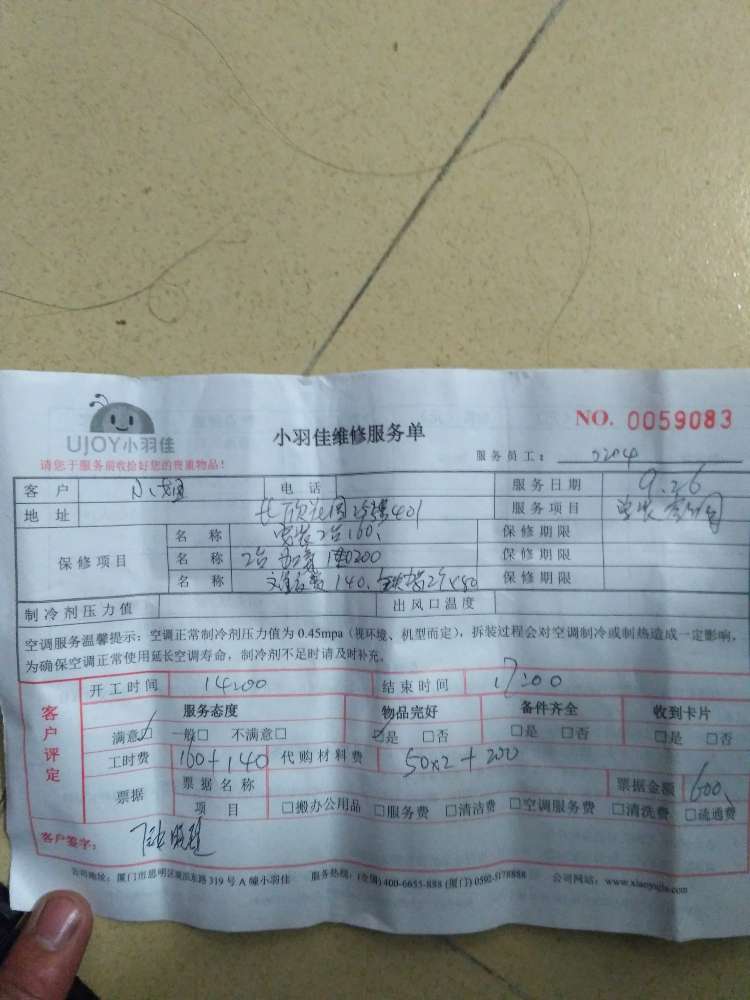 UJOY小羽佳
小羽佳维修服务单
NO. 0059083
请您于服务前收拾好您的贵重物品!
服务员工: 0204
客户 电话 服务日期 9.26
地址 401 服务项目 安装
保修项目 名称 安装2台160、 保修期限
名称 2台 200 保修期限
名称 140、 保修期限
制冷剂压力值 出风口温度
空调服务温馨提示: 空调正常制冷剂压力值为 0.45mpa (视环境、机型而定), 拆装过程会对空调制冷或制热造成一定影响,
为确保空调正常使用延长空调寿命, 制冷剂不足时请及时补充。
客户评定
开工时间 14:00 结束时间 17:00
服务态度 物品完好 备件齐全 收到卡片
满意☑ 一般□ 不满意□ ☑是 □否 □是 □否 □是 □否
工时费 160+140 代购材料费 50x2+200
票据 票据名称 票据金额 600、
项目 □搬办公用品 □服务费 □清洁费 □空调服务费 □清洗费 □疏通费
客户签字:
公司地址: 厦门市思明区 东路 319 号 A 幢小羽佳 服务热线: (全国) 400-6655-888 (厦门) 0592-5178888 公司网站: www.xiaoyujia.com